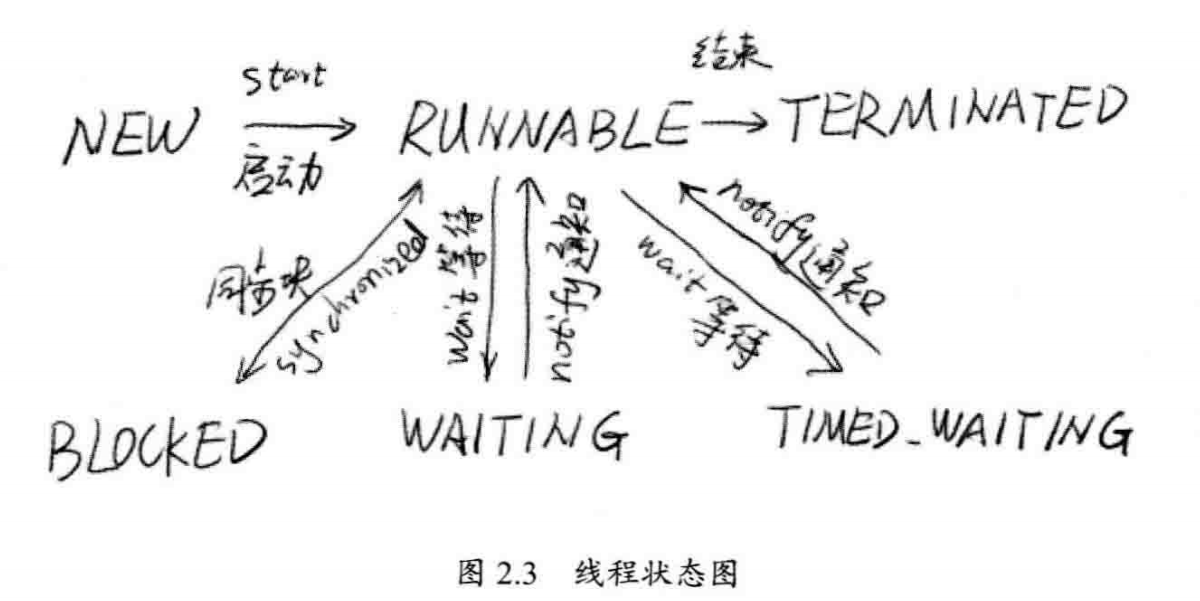 start
结束
NEW
RUNNABLE
TERMINATED
启动
同步块
synchronized
wait 等待
notify 通知
wait 等待
notify 通知
BLOCKED
WAITING
TIMED_WAITING
图 2.3 线程状态图